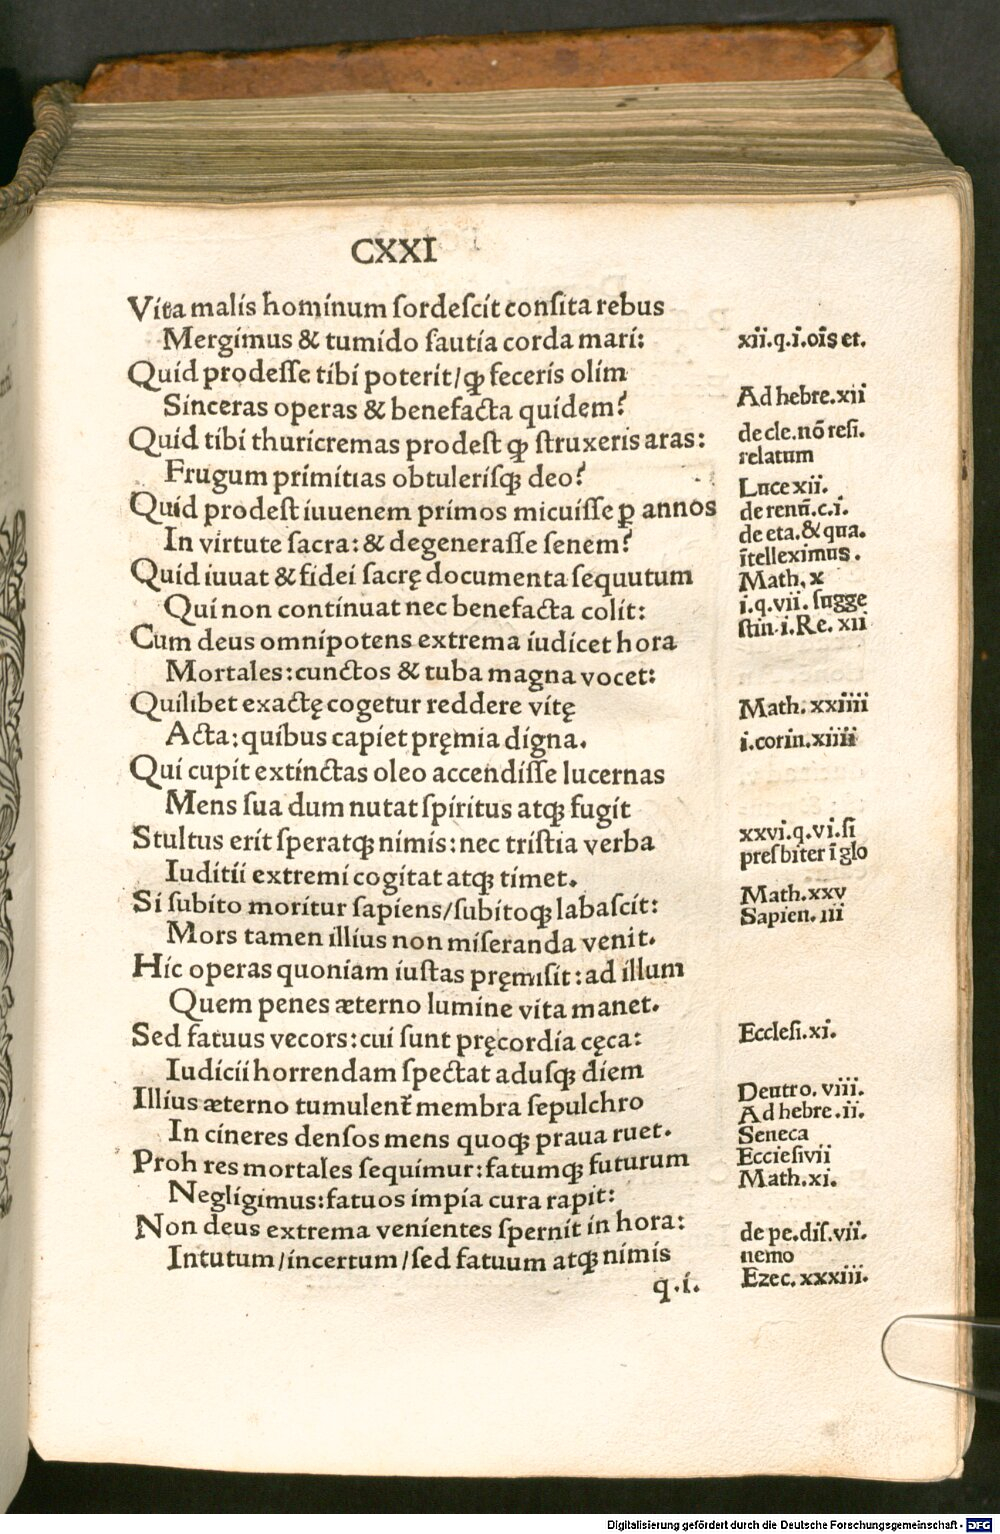 CXXI
Vita malis hominum sordescit consita rebus
Mergimus & tumido sautia corda mari:
Quid prodesse tibi poterit/ꝙ feceris olim
Sinceras operas & benefacta quidem?
Quid tibi thuricremas prodest ꝙ struxeris aras:
Frugum primitias obtulerisqꝫ deo?
Quid prodest iuuenem primos micuisse ꝑ annos
In virtute sacra: & degenerasse senem?
Quid iuuat & fidei sacrę documenta sequutum
Qui non continuat nec benefacta colit:
Cum deus omnipotens extrema iudicet hora
Mortales: cunctos & tuba magna vocet:
Quilibet exactę cogetur reddere vitę
Acta: quibus capiet pręmia digna.
Qui cupit extinctas oleo accendisse lucernas
Mens sua dum nutat spiritus atqꝫ fugit
Stultus erit speratqꝫ nimis: nec tristia verba
Iuditii extremi cogitat atqꝫ timet.
Si subito moritur sapiens/subitoqꝫ labascit:
Mors tamen illius non miseranda venit.
Hic operas quoniam iustas pręmisit: ad illum
Quem penes æterno lumine vita manet.
Sed fatuus vecors: cui sunt pręcordia cęca:
Iudicii horrendam spectat adusqꝫ diem
Illius æterno tumulent᷑ membra sepulchro
In cineres densos mens quoqꝫ praua ruet.
Proh res mortales sequimur: fatumqꝫ futurum
Negligimus: fatuos impia cura rapit:
Non deus extrema venientes spernit in hora:
Intutum/incertum/sed fatuum atqꝫ nimis
q.i.
xii.q.i.oīs et.
Ad hebre.xii
de cle.nō resi.
relatum
Luce xii.
de renū.c.i.
de eta.& qua.
ītelleximus.
Math. x
i.q.vii. sugge
stin.i.Re. xii
Math. xxiiii
i.corin.xiiii
xxvi.q.vi.si
presbiter ī glo
Math.xxv
Sapien. iii
Ecclesi.xi.
Deutro. viii.
Ad hebre.ii.
Seneca
Ecclesi vii
Math.xi.
de pe.dis.vii.
nemo
Ezec. xxxiii.
Digitalisierung gefördert durch die Deutsche Forschungsgemeinschaft - DFG